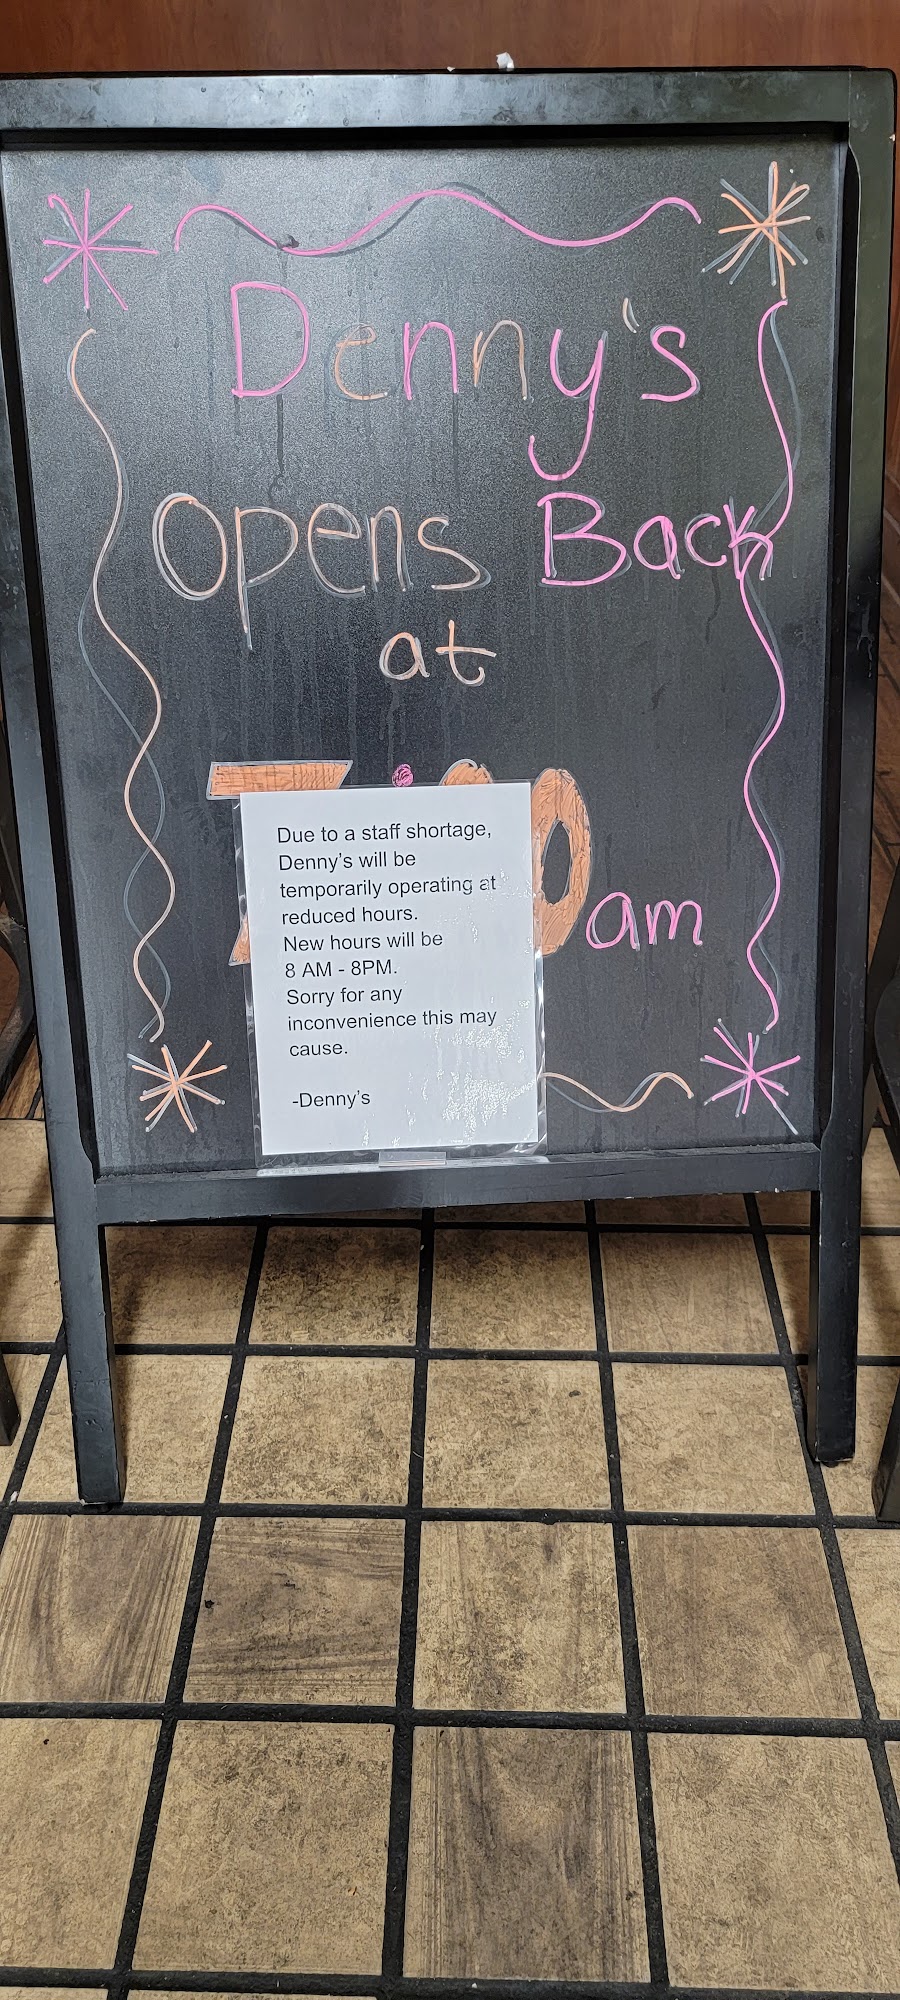 Denny's
Opens Back
at
am
Due to a staff shortage,
Denny's will be
temporarily operating at
reduced hours.
New hours will be
8 AM - 8PM.
Sorry for any
inconvenience this may
cause.
-Denny's